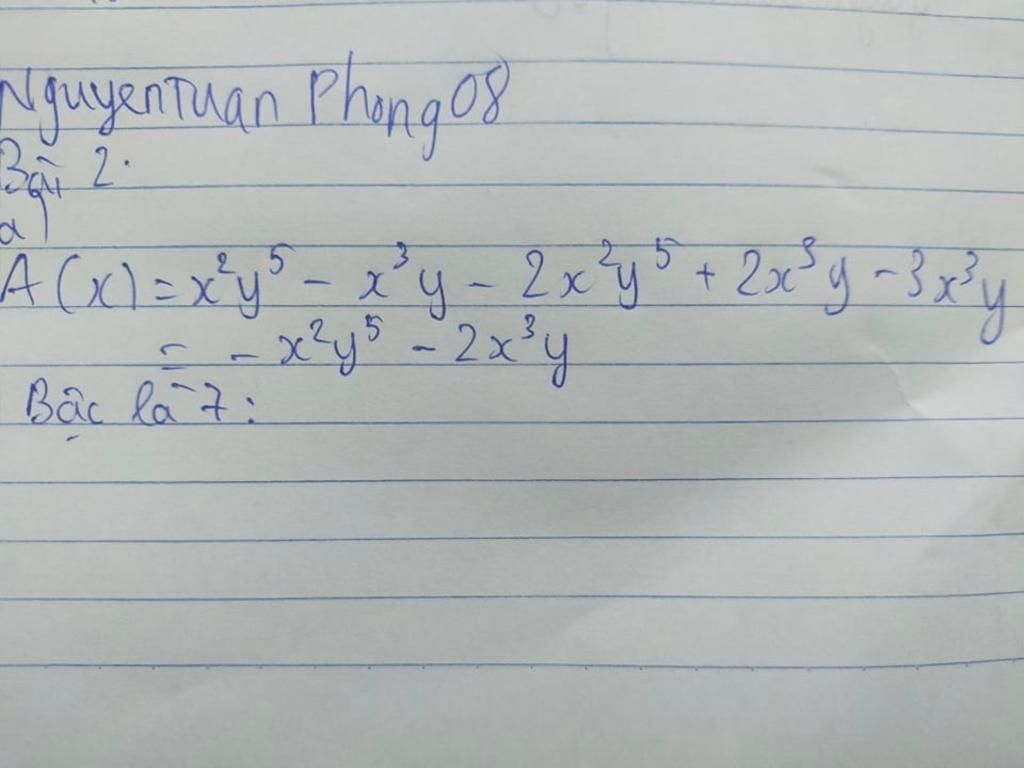 NguyenTuan Phong 08
Bài 2.
a)
A(x) = x²y⁵ - x³y - 2x²y⁵ + 2x³y - 3x³y
= - x²y⁵ - 2x³y
Bậc là 7: